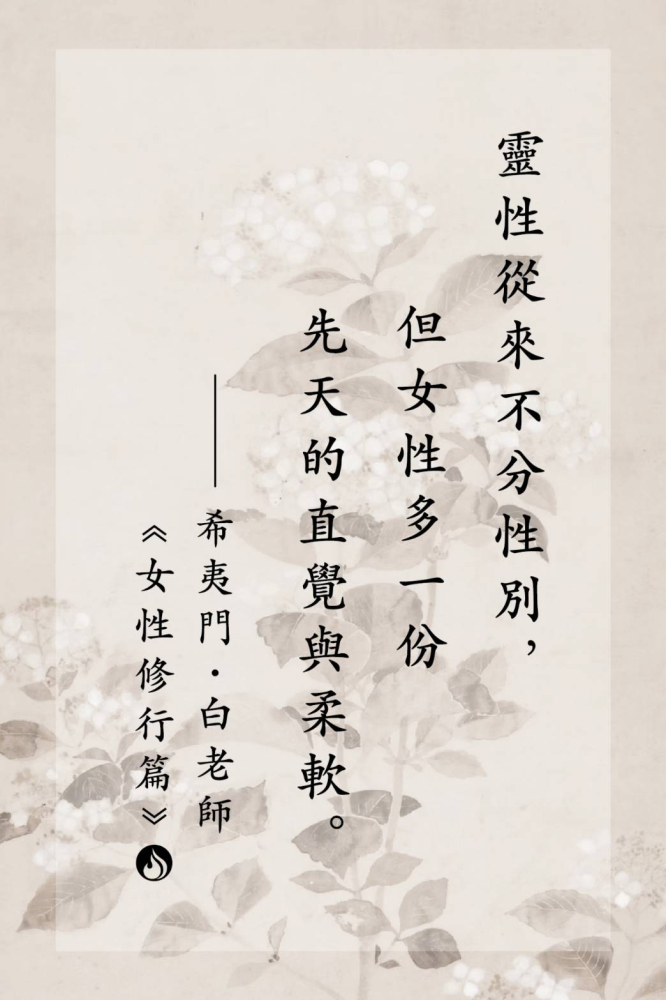 靈性從來不分性別，
但女性多一份
先天的直覺與柔軟。
——希夷門·白老師
《女性修行篇》